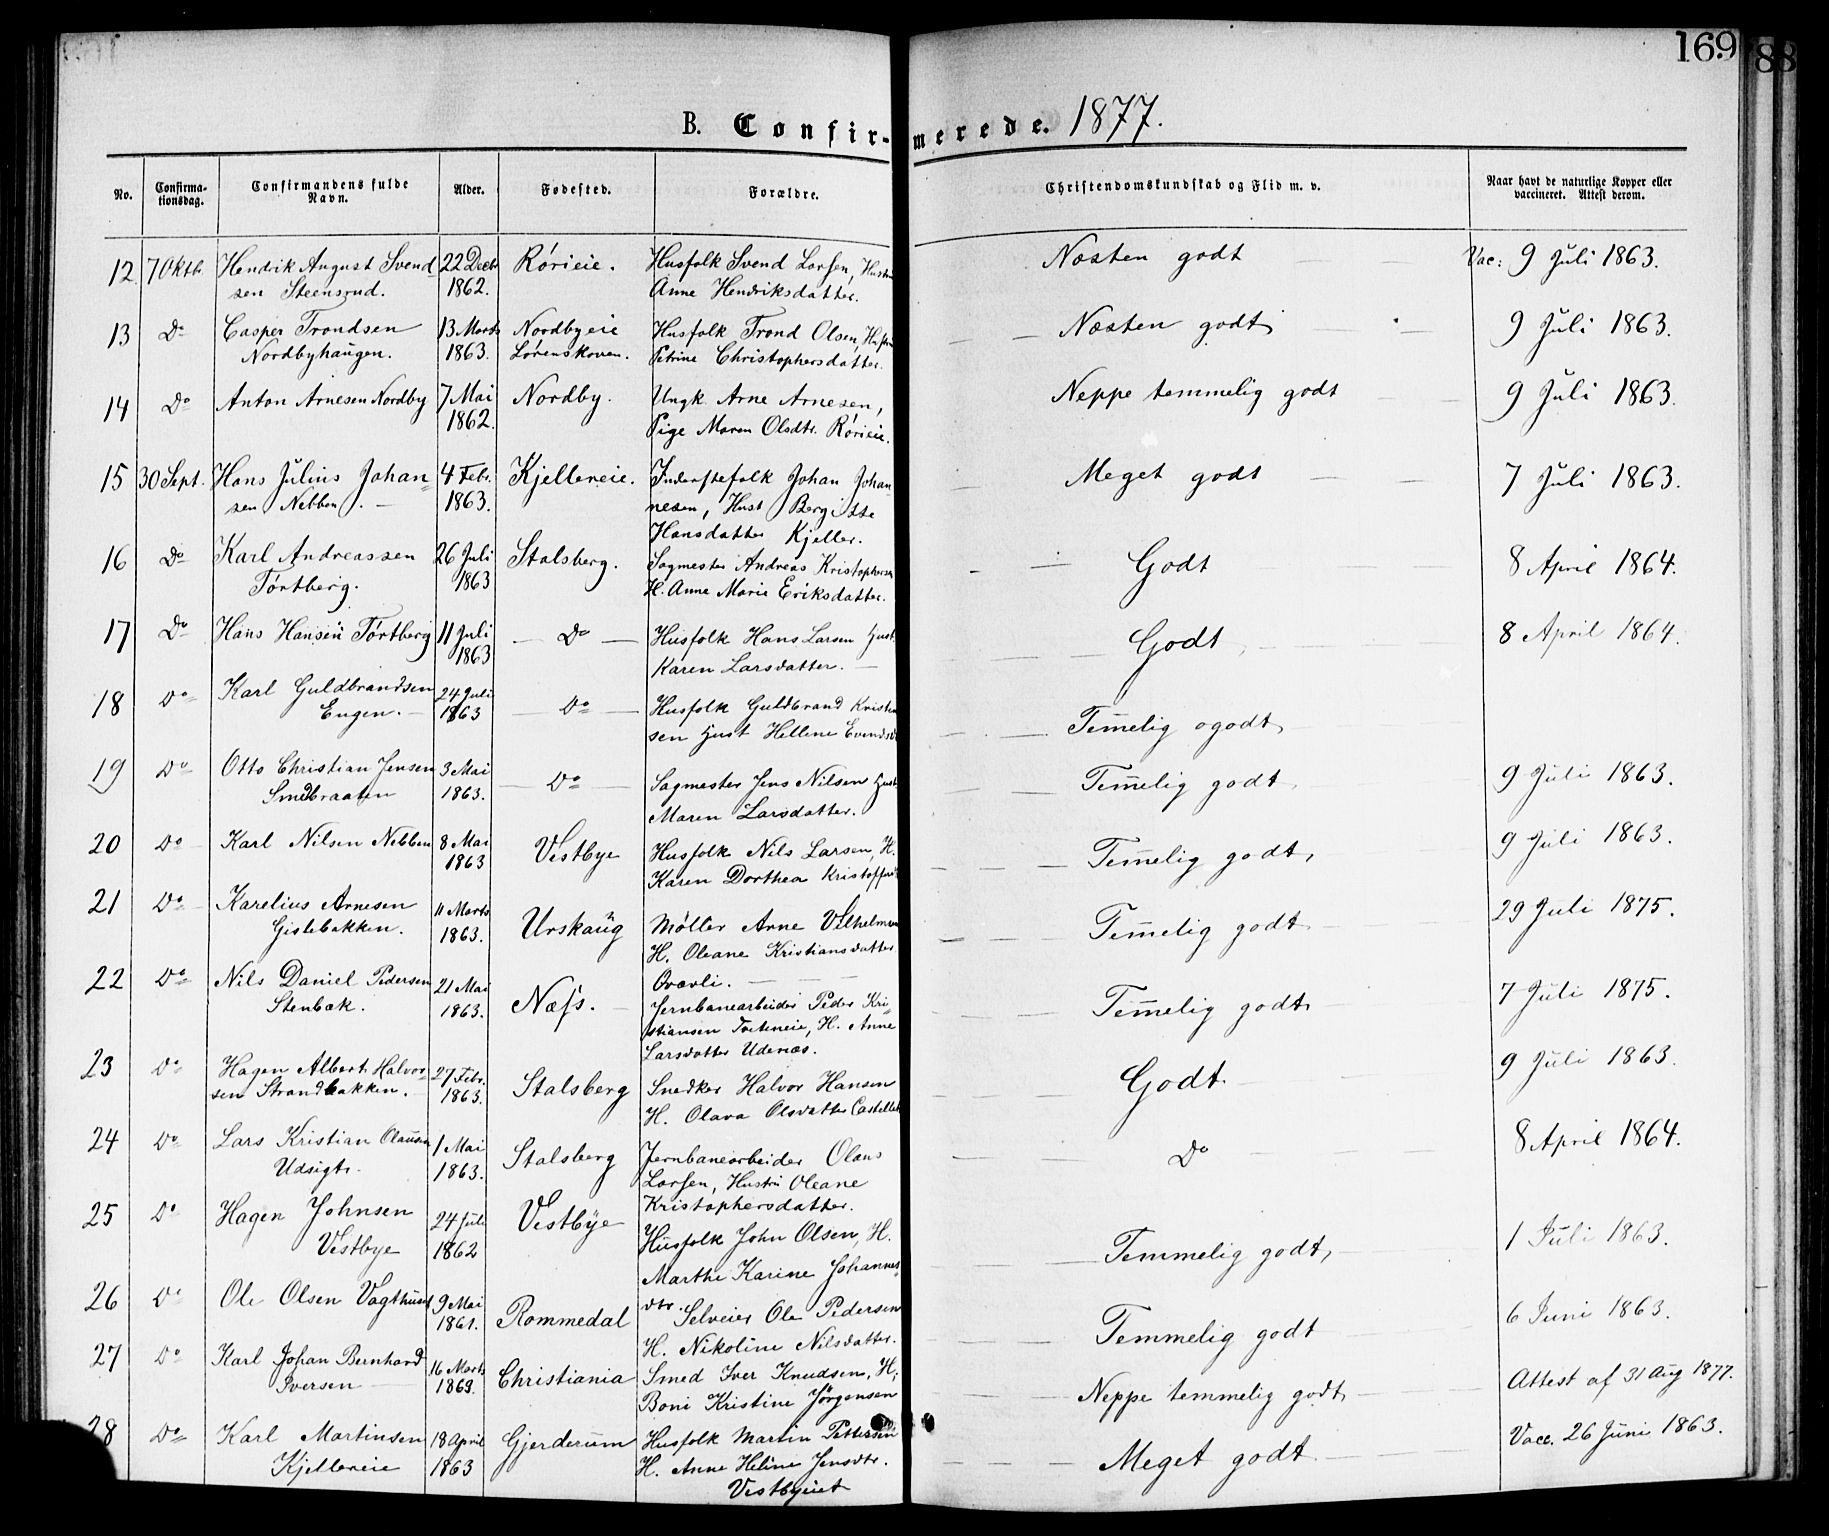 169
88
B. Confir-merede. 1877.
No. Confirma-tionsdag. Confirmandens fulde Navn. Alder. Fødested. Forældre. Christendomskundskab og Flid m. v. Naar havt de naturlige Kopper eller vaccineret. Attest derom.
12 7 Oktb. Hendrik August Svend 22 Decb. Rórieie. Husfolk Svend Larsen, Hustru Næsten godt Vac: 9 Juli 1863.
sen Steensrud. 1862. Anne Hendriksdatter.
13 Do Casper Trondsen 13 Marts Nordbyeie Husfolk Trond Olsen, Næsten godt 9 Juli 1863.
Nordbyhaugen. 1863. Lørenskoven. Petrine Christophersdatter.
14 Do Anton Arnesen Nordby 7 Mai Nordby. Ungk. Arne Arnesen, Neppe temmelig godt 9 Juli 1863.
1862. Pige Maren Olsdtr. Rórieie.
15 30 Sept. Hans Julius Johan= 4 Febr. Kjellereie. Inderstefolk Johan Johan- Meget godt 7 Juli 1863.
sen Nebben. 1863. nesen, Hust Bergitte
Hansdatter Kjeller.
16 Do Karl Andreassen 26 Juli Stalsberg. Sagmester Andreas Kristophersen Godt 8 April 1864.
Tórtberg. 1863 H. Anne Marie Eriksdatter.
17 Do Hans Hansen Tørtberg 11 Juli Do Husfolk Hans Larsen Hust. Godt 8 April 1864.
1863 Karen Larsdatter.
18 Do Karl Guldbrandsen 24 Juli Do Husfolk Guldbrand Kristian Temelig godt
Engen. 1863 sen Hust Hellene
19 Do Otto Christian Jensen 3 Mai Do Sagmester Jens Nilsen Hust. Temelig godt 9 Juli 1863.
Smedbraaten 1863. Maren Larsdatter.
20 Do Karl Nilsen Nebben 8 Mai Vestbye Husfolk Nils Larsen, H. Temelig godt, 9 Juli 1863.
1863 Karen Dorthea
21 Do Karelius Arnesen 11 Marts Urskaug Møller Arne Vilhelmsen Temelig godt 29 Juli 1875.
Gislebakken. 1863. H. Oleane Kristiansdatter
22 Do Nils Daniel Pedersen 21 Mai Næss. Temelig godt 7 Juli 1875.
Stenbæk. 1863. Jernbanearbeider Peder Kri=
stiansen Tveteneie, H. Anne
Larsdatter Udenæs.
23 Do Hagen Albert Halvor= 27 Febr. Stalsberg Snedker Halvor Hansen Godt. 9 Juli 1863.
sen Strandbakken. 1863. H. Olava Olsdatter
24 Do Lars Kristian Olausen 1 Mai Stalsberg Jernbanearbeider Olaus Do 8 April 1864.
Udsigt. 1863. Larsen, Hustru Oleane
Kristophersdatter.
25 Do Hagen Johnsen 24 Juli Vestbye Husfolk John Olsen, H. Temmelig godt, 1 Juli 1863.
Vestbye 1862 Marthe Karine Johannes=
dtr.
26 Do Ole Olsen Vagthuset 9 Mai Rommedal Selveier Ole Pedersen Temmelig godt 6 Juni 1863.
1861. H. Nikoline Nilsdatter.
27 Do Karl Johan Bernhard 16 Marts Christiania Smed Iver Knudsen, H, Neppe temmelig godt Attest af 31 Aug 1877.
Iversen 1863. Boni Kristine Jørgensen
28 Do Karl Martinsen 18 April Gjerderum Husfolk Martin Pettersen Meget godt. Vacc. 26 Juni 1863.
Kjellereie 1863 H. Anne Heline Jensdtr.
Vestbyeiet